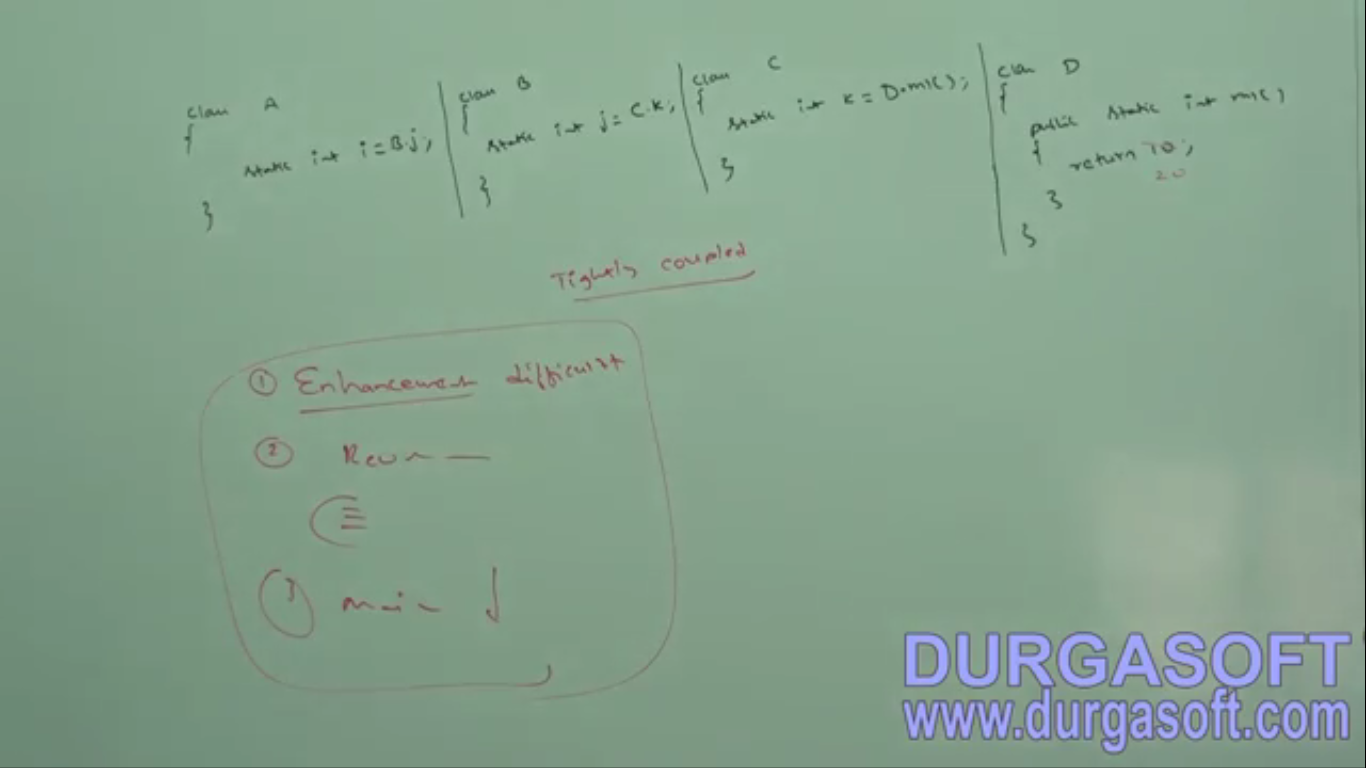 class A
{
static int i=B.j;
}
class B
{
static int j=C.k;
}
class C
{
static int k=D.m1();
}
class D
{
public static int m1()
{
return 10;
20
}
}
Tightly coupled
① Enhancement difficult
②
DURGASOFT
www.durgasoft.com